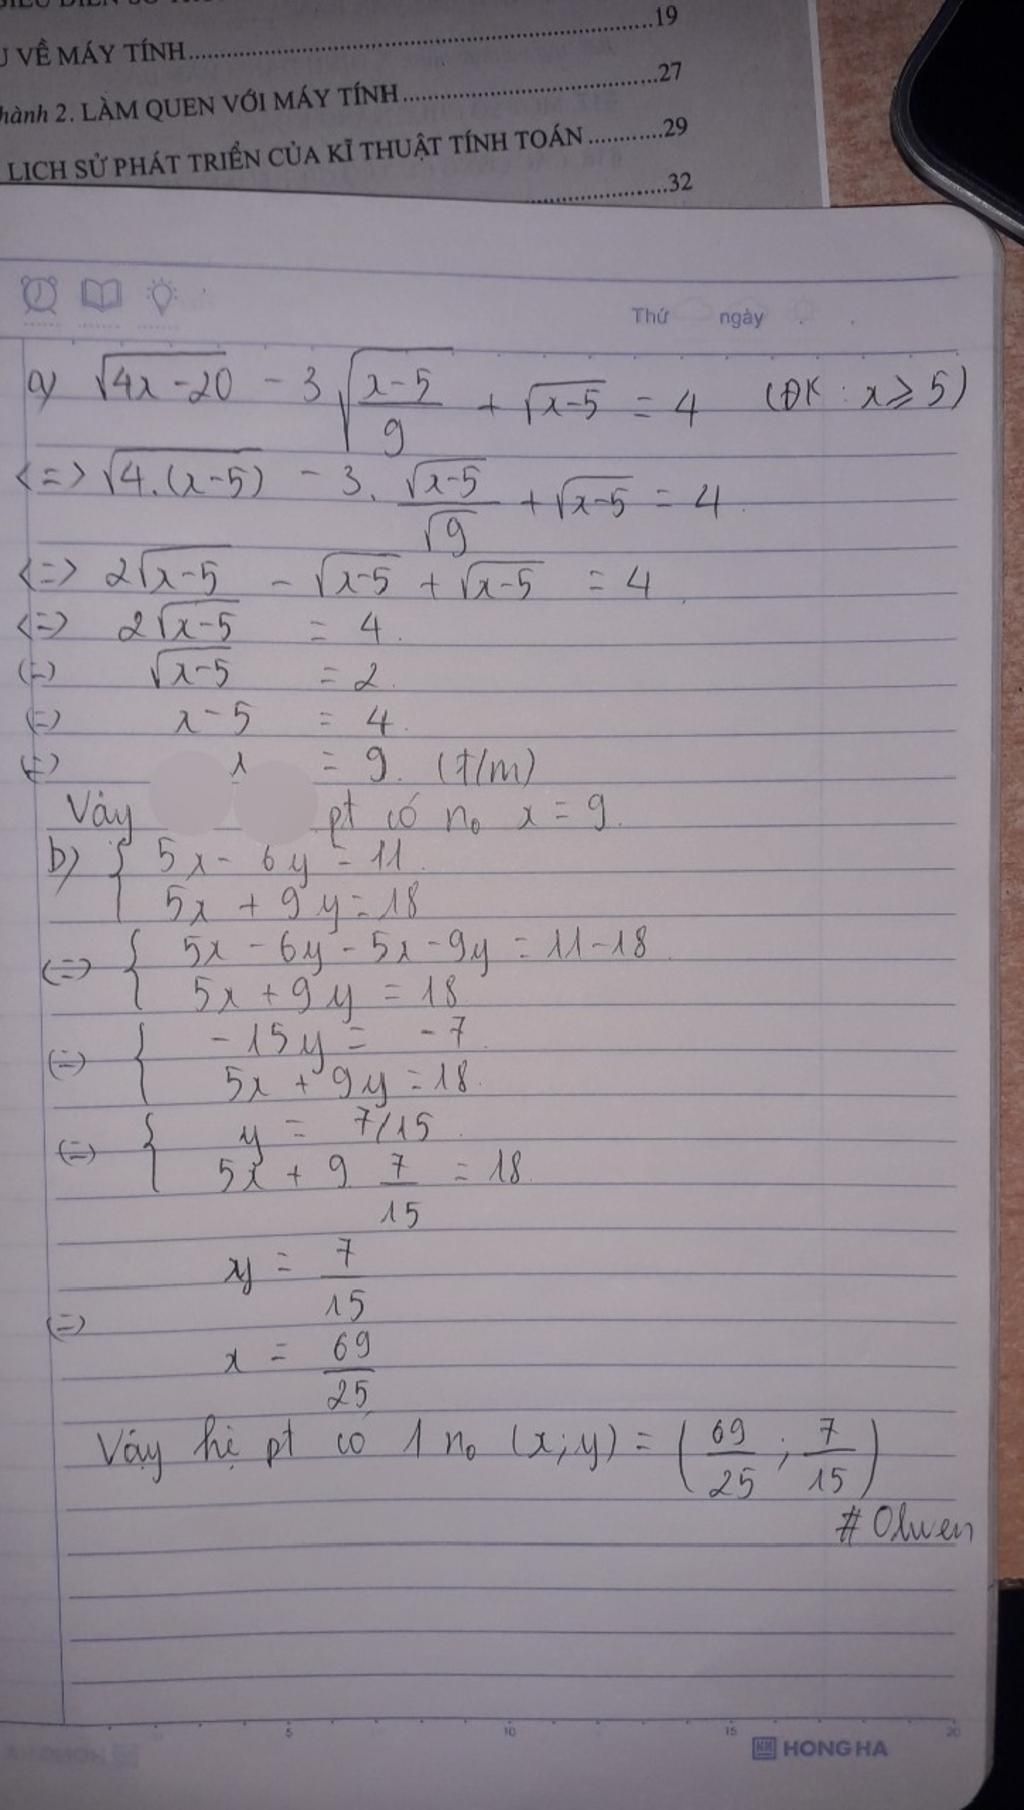 U VỀ MÁY TÍNH..........19
hành 2. LÀM QUEN VỚI MÁY TÍNH..........27
LỊCH SỬ PHÁT TRIỂN CỦA KĨ THUẬT TÍNH TOÁN..........29
..........32
Thứ ngày
a) √(4x-20) - 3√((x-5)/9) + √(x-5) = 4 (ĐK : x ≥ 5)
<=> √(4.(x-5)) - 3. √(x-5)/√9 + √(x-5) = 4.
<=> 2√(x-5) - √(x-5) + √(x-5) = 4
<=> 2√(x-5) = 4.
(=) √(x-5) = 2.
(=) x-5 = 4.
(=) x = 9. (t/m)
Vậy pt có no x = 9.
b) { 5x - 6y = 11.
5x + 9y = 18
(=) { 5x - 6y - 5x - 9y = 11-18.
5x + 9y = 18
(=) { -15y = -7.
5x + 9y = 18.
(=) { y = 7/15.
5x + 9 7/15 = 18.
y = 7/15
(=)
x = 69/25
Vậy hệ pt có 1 no (x;y) = (69/25 ; 7/15)
# Olwen
5 10 15 20
HONG HA